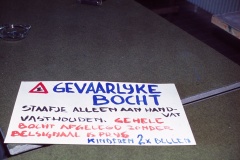 GEVAARLYKE
BOCHT
STAAFJE ALLEEN AAN HAND-
VAT
VASTHOUDEN. GEHELE
BOCHT AFGELEGD ZONDER
BELSIGNAAL IS PRYS
KINDEREN 2x BELLEN